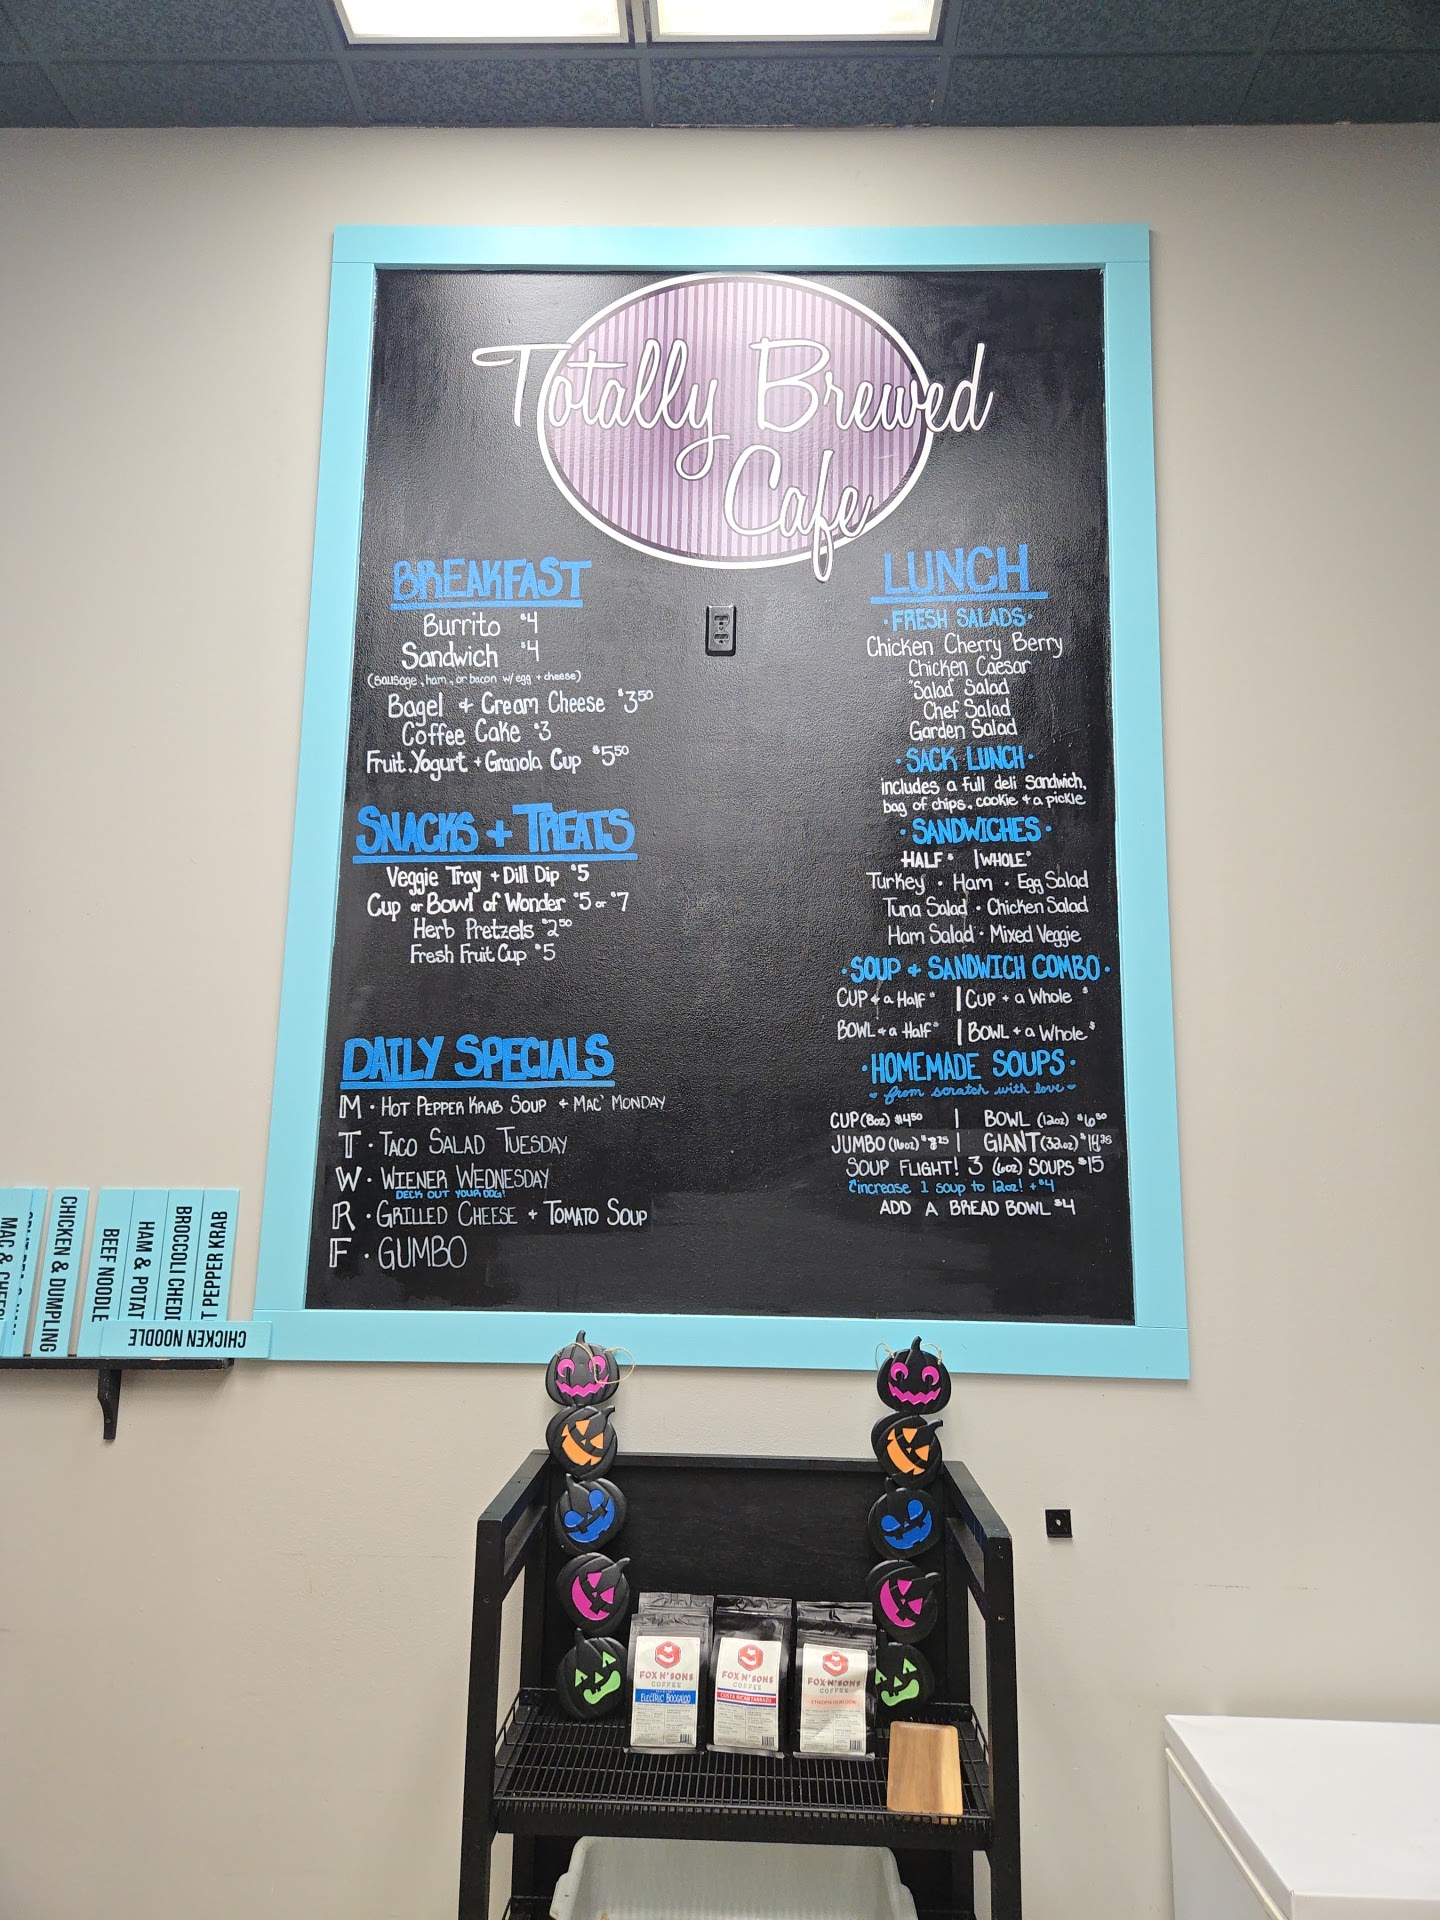 Totally Brewed
Cafe
BREAKFAST
Burrito $4
Sandwich $4
(sausage, ham, or bacon w/ egg + cheese)
Bagel + Cream Cheese $3.50
Coffee Cake $3
Fruit, Yogurt + Granola Cup $5.50
SNACKS + TREATS
Veggie Tray + Dill Dip $5
Cup or Bowl of Wonder $5 or $7
Herb Pretzels $2.50
Fresh Fruit Cup $5
DAILY SPECIALS
M • HOT PEPPER KRAB SOUP + MAC' MONDAY
T • TACO SALAD TUESDAY
W • WIENER WEDNESDAY
DECK OUT YOUR DOG!
R • GRILLED CHEESE + TOMATO SOUP
F • GUMBO
LUNCH
• FRESH SALADS •
Chicken Cherry Berry
Chicken Caesar
"Salad" Salad
Chef Salad
Garden Salad
• SACK LUNCH •
includes a full deli Sandwich,
bag of chips, cookie + a pickle
• SANDWICHES •
HALF $ | WHOLE $
Turkey • Ham • Egg Salad
Tuna Salad • Chicken Salad
Ham Salad • Mixed Veggie
• SOUP + SANDWICH COMBO •
CUP + a Half $ | CUP + a Whole $
BOWL + a Half $ | BOWL + a Whole $
• HOMEMADE SOUPS •
from scratch with love
CUP (8oz) $4.50 | BOWL (12oz) $6.50
JUMBO (16oz) $8.25 | GIANT (32oz)
SOUP FLIGHT! 3 (6oz) SOUPS $15
increase 1 soup to 12oz! + $4
ADD A BREAD BOWL $4
MAC & CHEES
CHICKEN & DUMPLING
BEEF NOODLE
HAM & POTAT
BROCCOLI CHED
T PEPPER KRAB
CHICKEN NOODLE
FOX N' SONS
COFFEE
ELECTRIC BOOGALOO
FOX N' SONS
COFFEE
FOX N' SONS
COFFEE